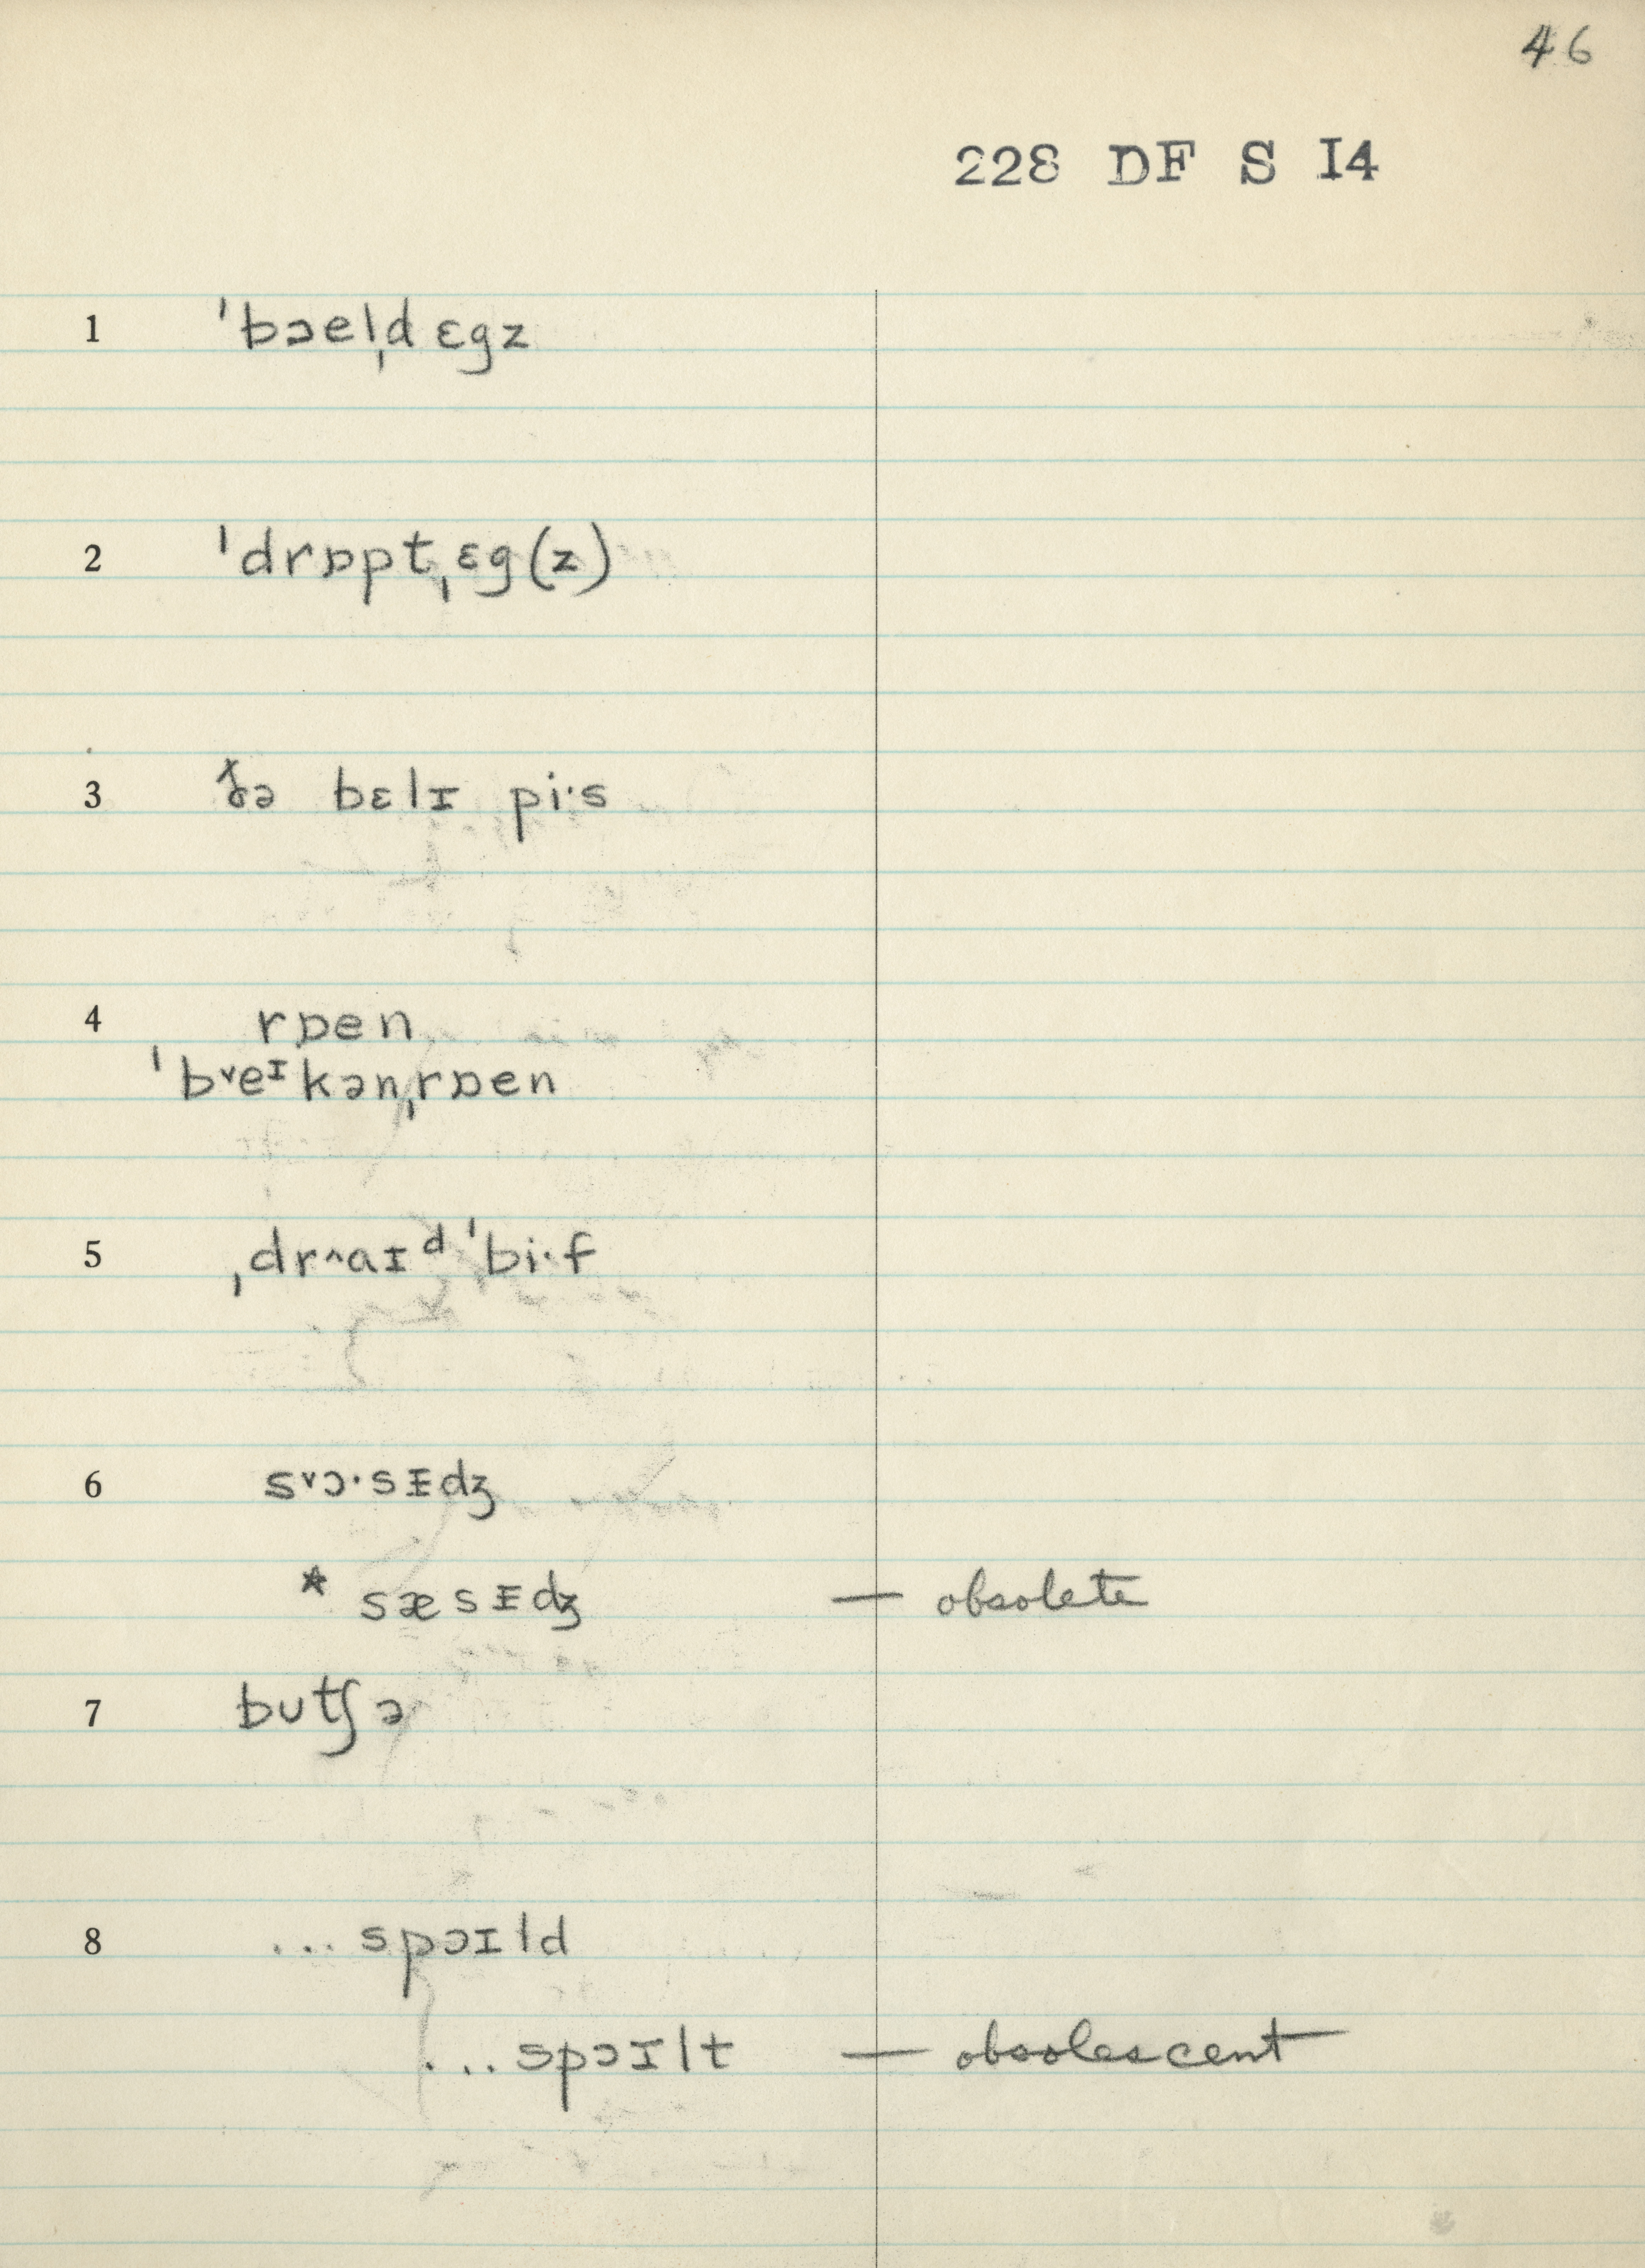 46
228 DF S I4
1 ˈbɔelˌd ɛgz
2 ˈdrɒptˌɛg(z)
3 ðə bɛlɪ piˑs
4 rɒen
ˈb˅eᶦkənˌrɒen
5 ˌdr^aɪᵈ ˈbiˑf
6 s˅ɔˑsᵻdʒ
* sæsᵻdʒ — obsolete
7 bʊtʃə
8 ... spɔɪld
... spɔɪlt — obsolescent